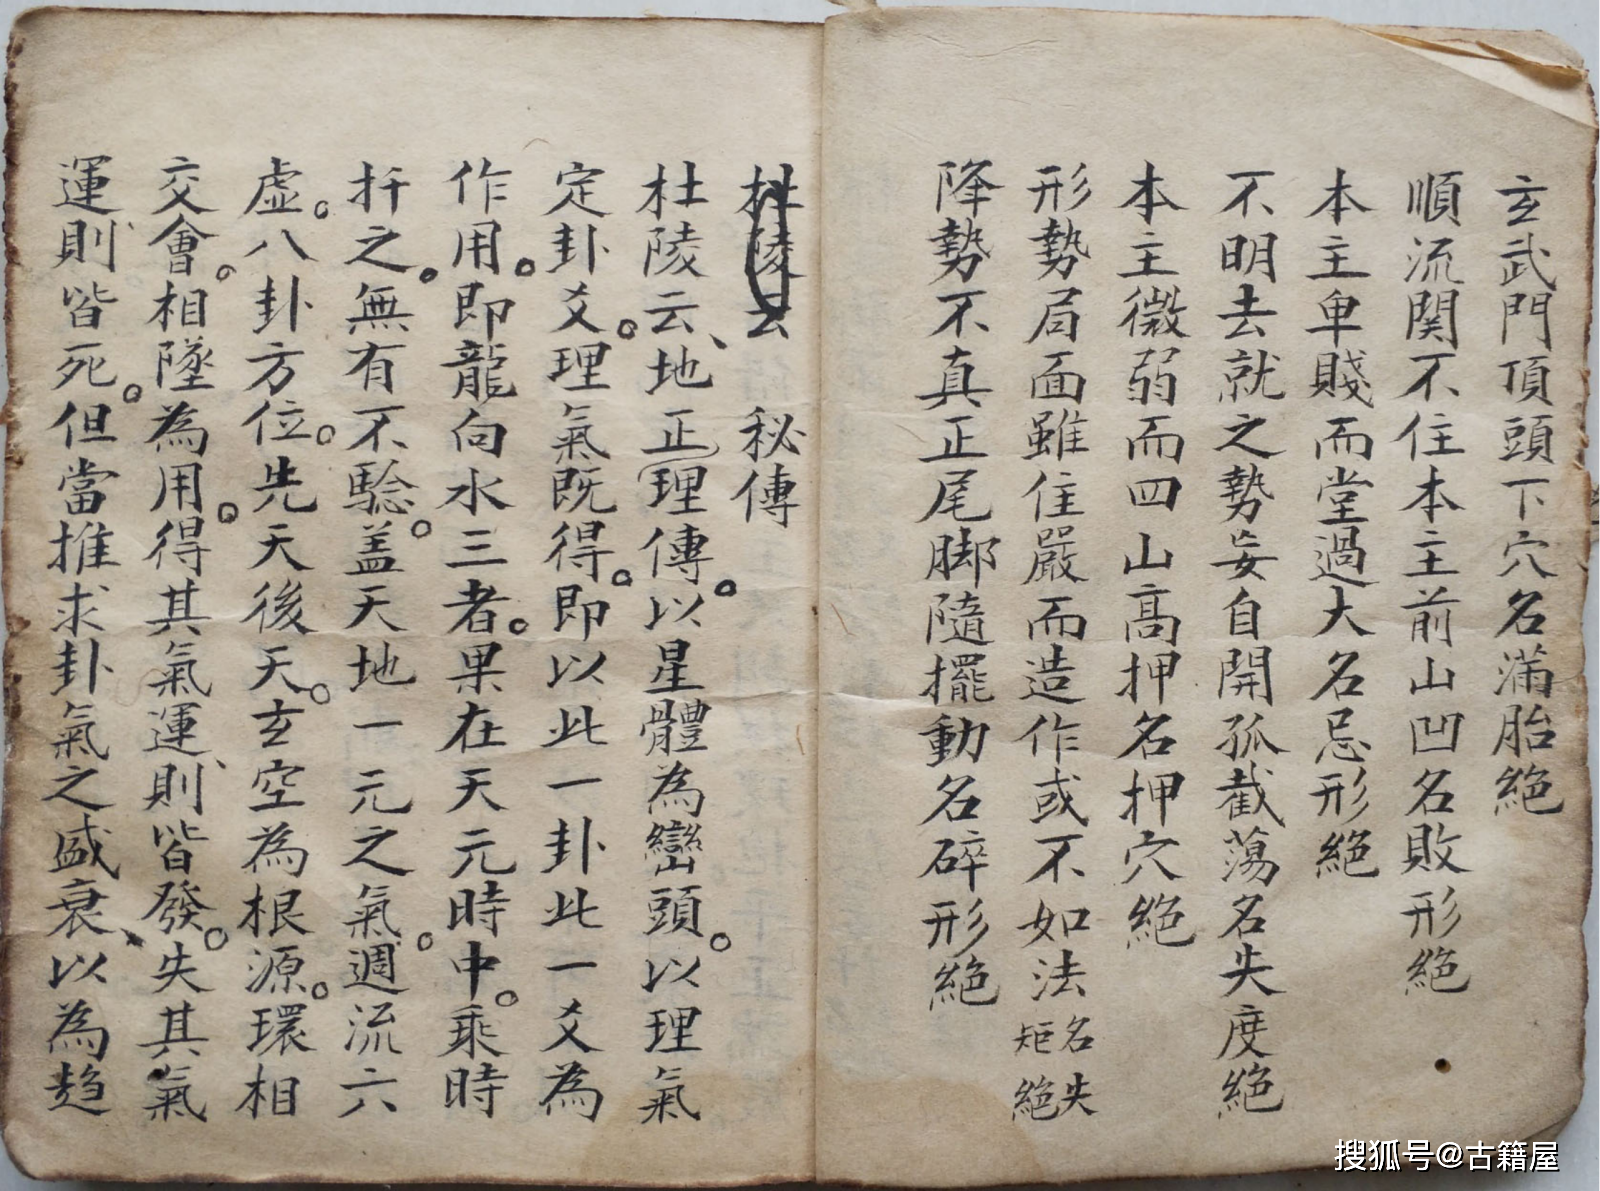 玄武門頂頭下穴名滿胎絕
順流関不住本主前山凹名敗形絕
本主卑賤而堂過大名忌形絕
不明去就之勢妄自開孤截蕩名失度絕
本主微弱而四山高押名押穴絕
形勢局面雖住嚴而造作或不如法名失矩絕
降勢不真正尾脚隨擺動名碎形絕
杜陵云 秘傳
杜陵云、地正理傳。以星體為巒頭。以理氣
定卦爻。理氣既得。即以此一卦此一爻為
作用。即龍向水三者。果在天元時中。乘時
扦之。無有不驗。盖天地一元之氣。週流六
虛。八卦方位。先天後天。玄空為根源。環相
交會。相墜為用。得其氣運、則皆發。失其氣
運、則皆死。但當推求卦氣之盛衰、以為趋
搜狐号@古籍屋